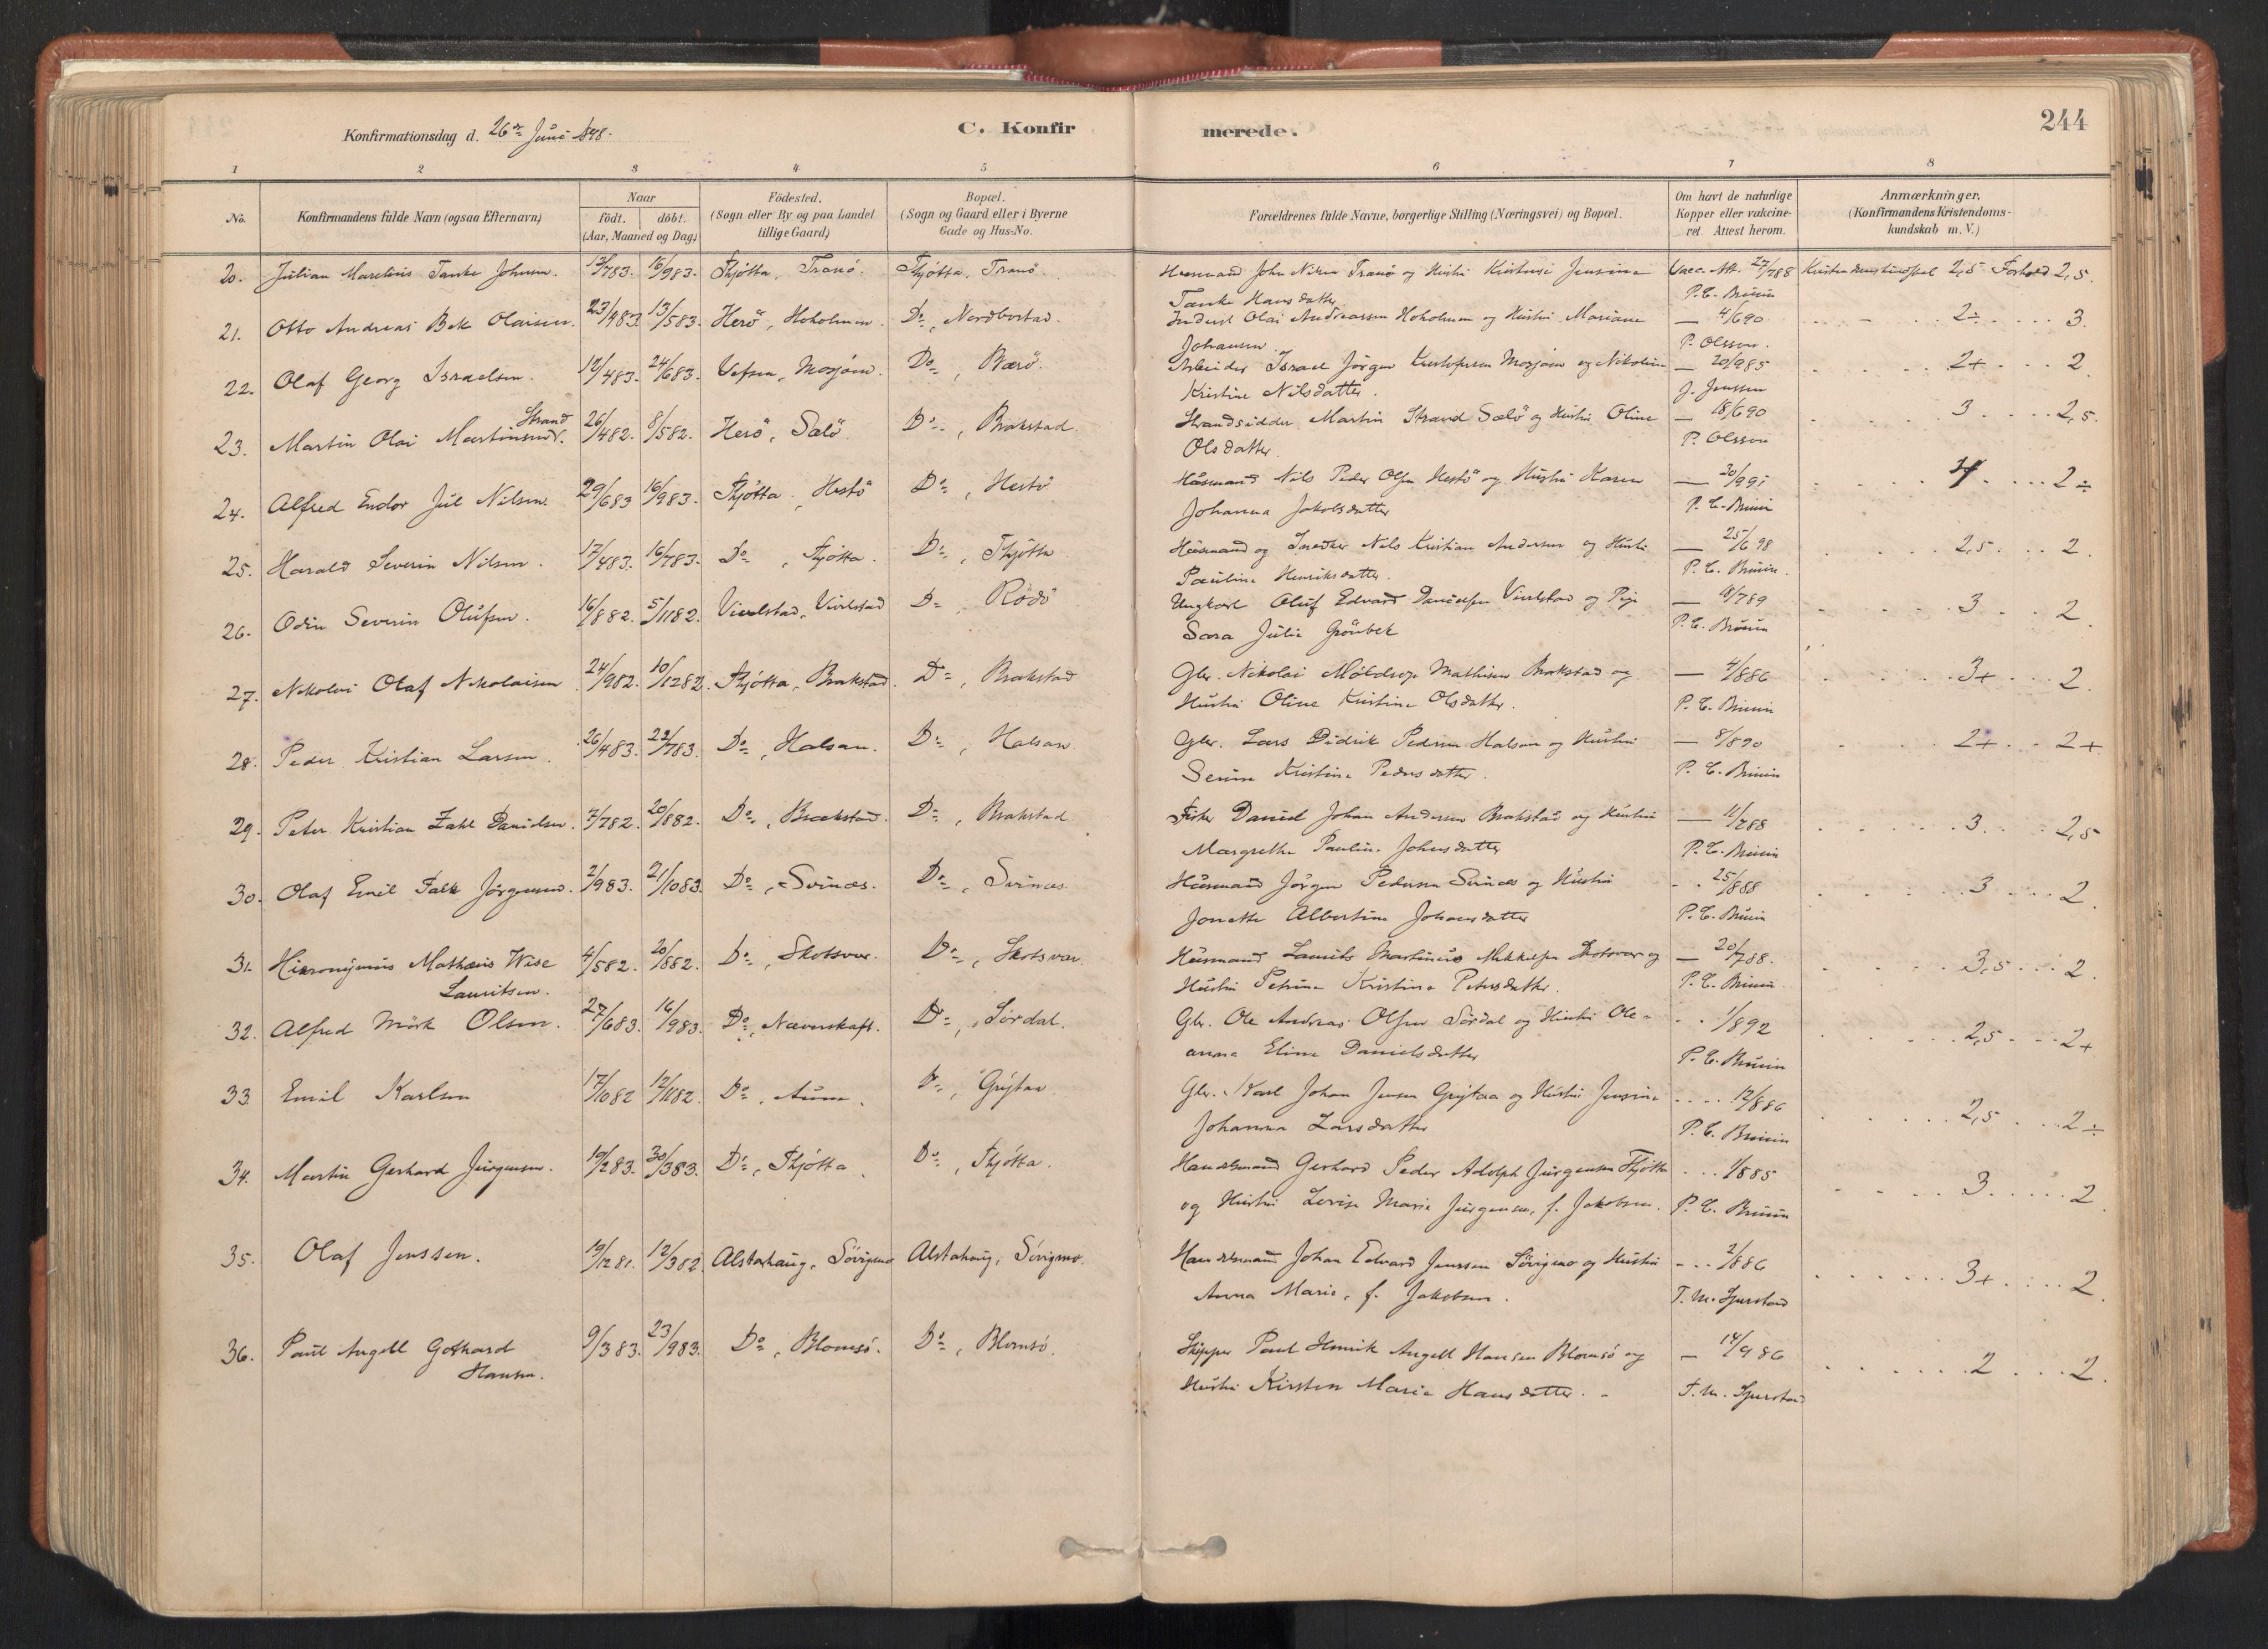 Konfirmationsdag d. 26de Juni 1898.
C. Konfirmerede.
244
1 2 3 4 5 6 7 8
No.
Konfirmandens fulde Navn (ogsaa Efternavn)
Naar
födt. döbt.
(Aar, Maaned og Dag)
Födested.
(Sogn eller By og paa Landet
tillige Gaard)
Bopæl.
(Sogn og Gaard eller i Byerne
Gade og Hus-No.
Forældrenes fulde Navne, borgerlige Stilling (Næringsvei) og Bopæl.
Om havt de naturlige
Kopper eller vakcine-
ret. Attest herom.
Anmærkninger.
(Konfirmandens Kristendoms-
kundskab m. V.)
20. Julian Marelius Tanke Johnsen. 16/983. Thjötta, Tranö. Thjötta, Tranö. Husmand John Nilsen Tranö og Hustru Jensine Vacc. Att. 27/788 2,5 Forhold 2,5.
Tanke Hansdatter. P. C. Bruun
21. Otto Andreas Bek Olaisen. 13/583. Herö, Hoholmen. Do, Nordbostad. Inderst Olai Andreassen Hoholmen og Hustru Mariane — 4/690 2÷ 3.
Johansen. P. Olsson.
22. Olaf Georg Israelsen. 12/483. 24/683. Vefsen, Mosjöen. Do, Bærö. Arbeider Israel Jörgen Mosjöen og Nikoline — 20/985 2+ 2
Kristine Nilsdatter. J. Jenssen
23. Martin Olai Martinsen Strand. 26/482. 8/582. Herö, Salö. Do, Brakstad. Strandsidder Martin Strand Salö og Hustru Oline — 18/690 3 2,5.
Olsdatter. P. Olsson
24. Alfred Endor Jul Nilsen. 29/683 16/983. Thjötta, Hestö Do, Hestö Husmand Nils Peder Olsen Hestö og Hustru Karen — 4 2÷
Johanna Jakobsdatter P. C. Bruun
25. Harald Severin Nilsen. 17/483. 16/783. Do, Thjötta. Do, Thjötta Husmand og Nils Kristian Andersen og Hustru — 25/698 2,5. 2.
Pauline Henriksdatter. P. C. Bruun.
26. Odin Severin Olufsen. 16/882. 5/1182. Vivelstad, Vivelstad Do, Rödö Ungkarl Oluf Edvard Danielsen Vivelstad og Pige — 8/789 3 2.
Sara Julie Grönbek P. C. Bruun
27. Nikolai Olaf Nikolaisen 24/982. 10/1282. Thjötta, Brakstad. Do, Brakstad Gbr. Nikolai Möldrup Mathisen Brakstad og — 4/886 3+ 2.
Hustru Oline Kristine Olsdatter. P. C. Bruun
28. Peder Kristian Larsen. 26/483. 22/783. Do, Halsan. Do, Halsan Gbr. Lars Didrik Pedersen Halsan og Hustru — 8/890 2+ 2+
Serine Kristine Pedersdatter. P. C. Bruun
29. Peter Kristian Zahl Danielsen. 7/782. 20/882. Do, Brakstad. Do, Brakstad Fisker Daniel Johan Andersen Brakstad og Hustru — 11/788 3 2,5
Margrethe Pauline Johnsdatter P. C. Bruun
30. Olaf Emil Falk Jörgensen. 2/983. 21/1083. Do, Svinæs. Do, Svinæs Husmand Jörgen Pedersen Svinæs og Hustru 25/888 3 2.
Jonette Albertine Johansdatter P. C. Bruun
31. Hieronymus Mathæus Wise 4/582. 20/882. Do, Skotsvær. Do, Skotsvær. Husmand Laurits Martinius Mikkelsen Skotsvær og — 20/788. 3,5 2.
Lauritsen. Hustru Petrine Kristine Petersdatter. P. C. Bruun
32. Alfred Mörk Olsen. 27/683. 16/983. Do, Næverskaft. Do, Sördal. Gbr. Ole Andreas Olsen Sördal og Hustru Ole- 1/892 2,5 2+
anna Eline Danielsdatter P. C. Bruun
33. Emil Karlsen 17/1082 12/1182. Do, Aunen. Do, Grytaa Gbr. Karl Johan Jensen Grytaa og Hustru Jensine 12/886 2,5 2÷
Johanna Larsdatter P. C. Bruun
34. Martin Gerhard Jürgensen. 10/283. 30/383. Do, Thjötta. Do, Thjötta. Handelsmand Gerhard Peder Adolph Jürgensen Thjötta 1/885 3 2.
og Hustru Lovise Marie Jürgensen, f. Jakobsen. P. C. Bruun
35. Olaf Jenssen. 19/1281. 12/382. Alstahaug, Sövigmo Alstahaug, Sövigmo. Handelsmand Johan Edvard Jenssen Sövigmo og Hustru 2/886 3+ 2.
Anna Marie, f. Jakobsen. T. M. Sjurstad
36. Paul Angell Gothard 9/383. 23/983. Do, Blomsö. Do, Blomsö. Skipper Paul Henrik Angell Hansen Blomsö og — 14/986 2 2.
Hansen. Hustru Kirsten Marie Hansdatter. T. M. Sjurstad